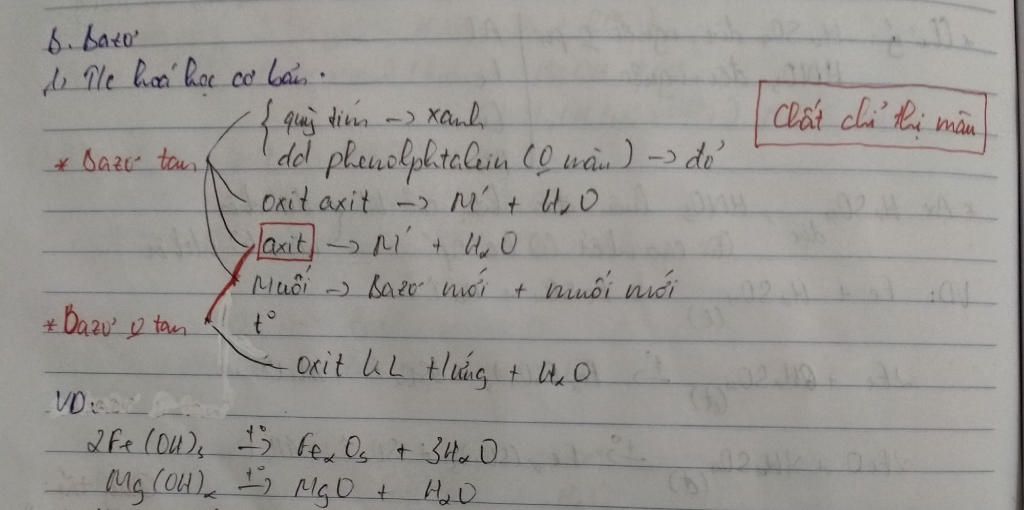 B. Bazơ
1) T/c hoá học cơ bản.
quỳ tím → xanh
Chất chỉ thị màu
* Bazơ tan
dd phenolphtalein (0 màu) → đỏ
oxit axit → M' + H₂O
axit → M' + H₂O
Muối → Bazơ mới + muối mới
* Bazơ 0 tan
t°
oxit KL tương ứng + H₂O
VD:
2Fe(OH)₃ t°→ Fe₂O₃ + 3H₂O
Mg(OH)₂ t°→ MgO + H₂O